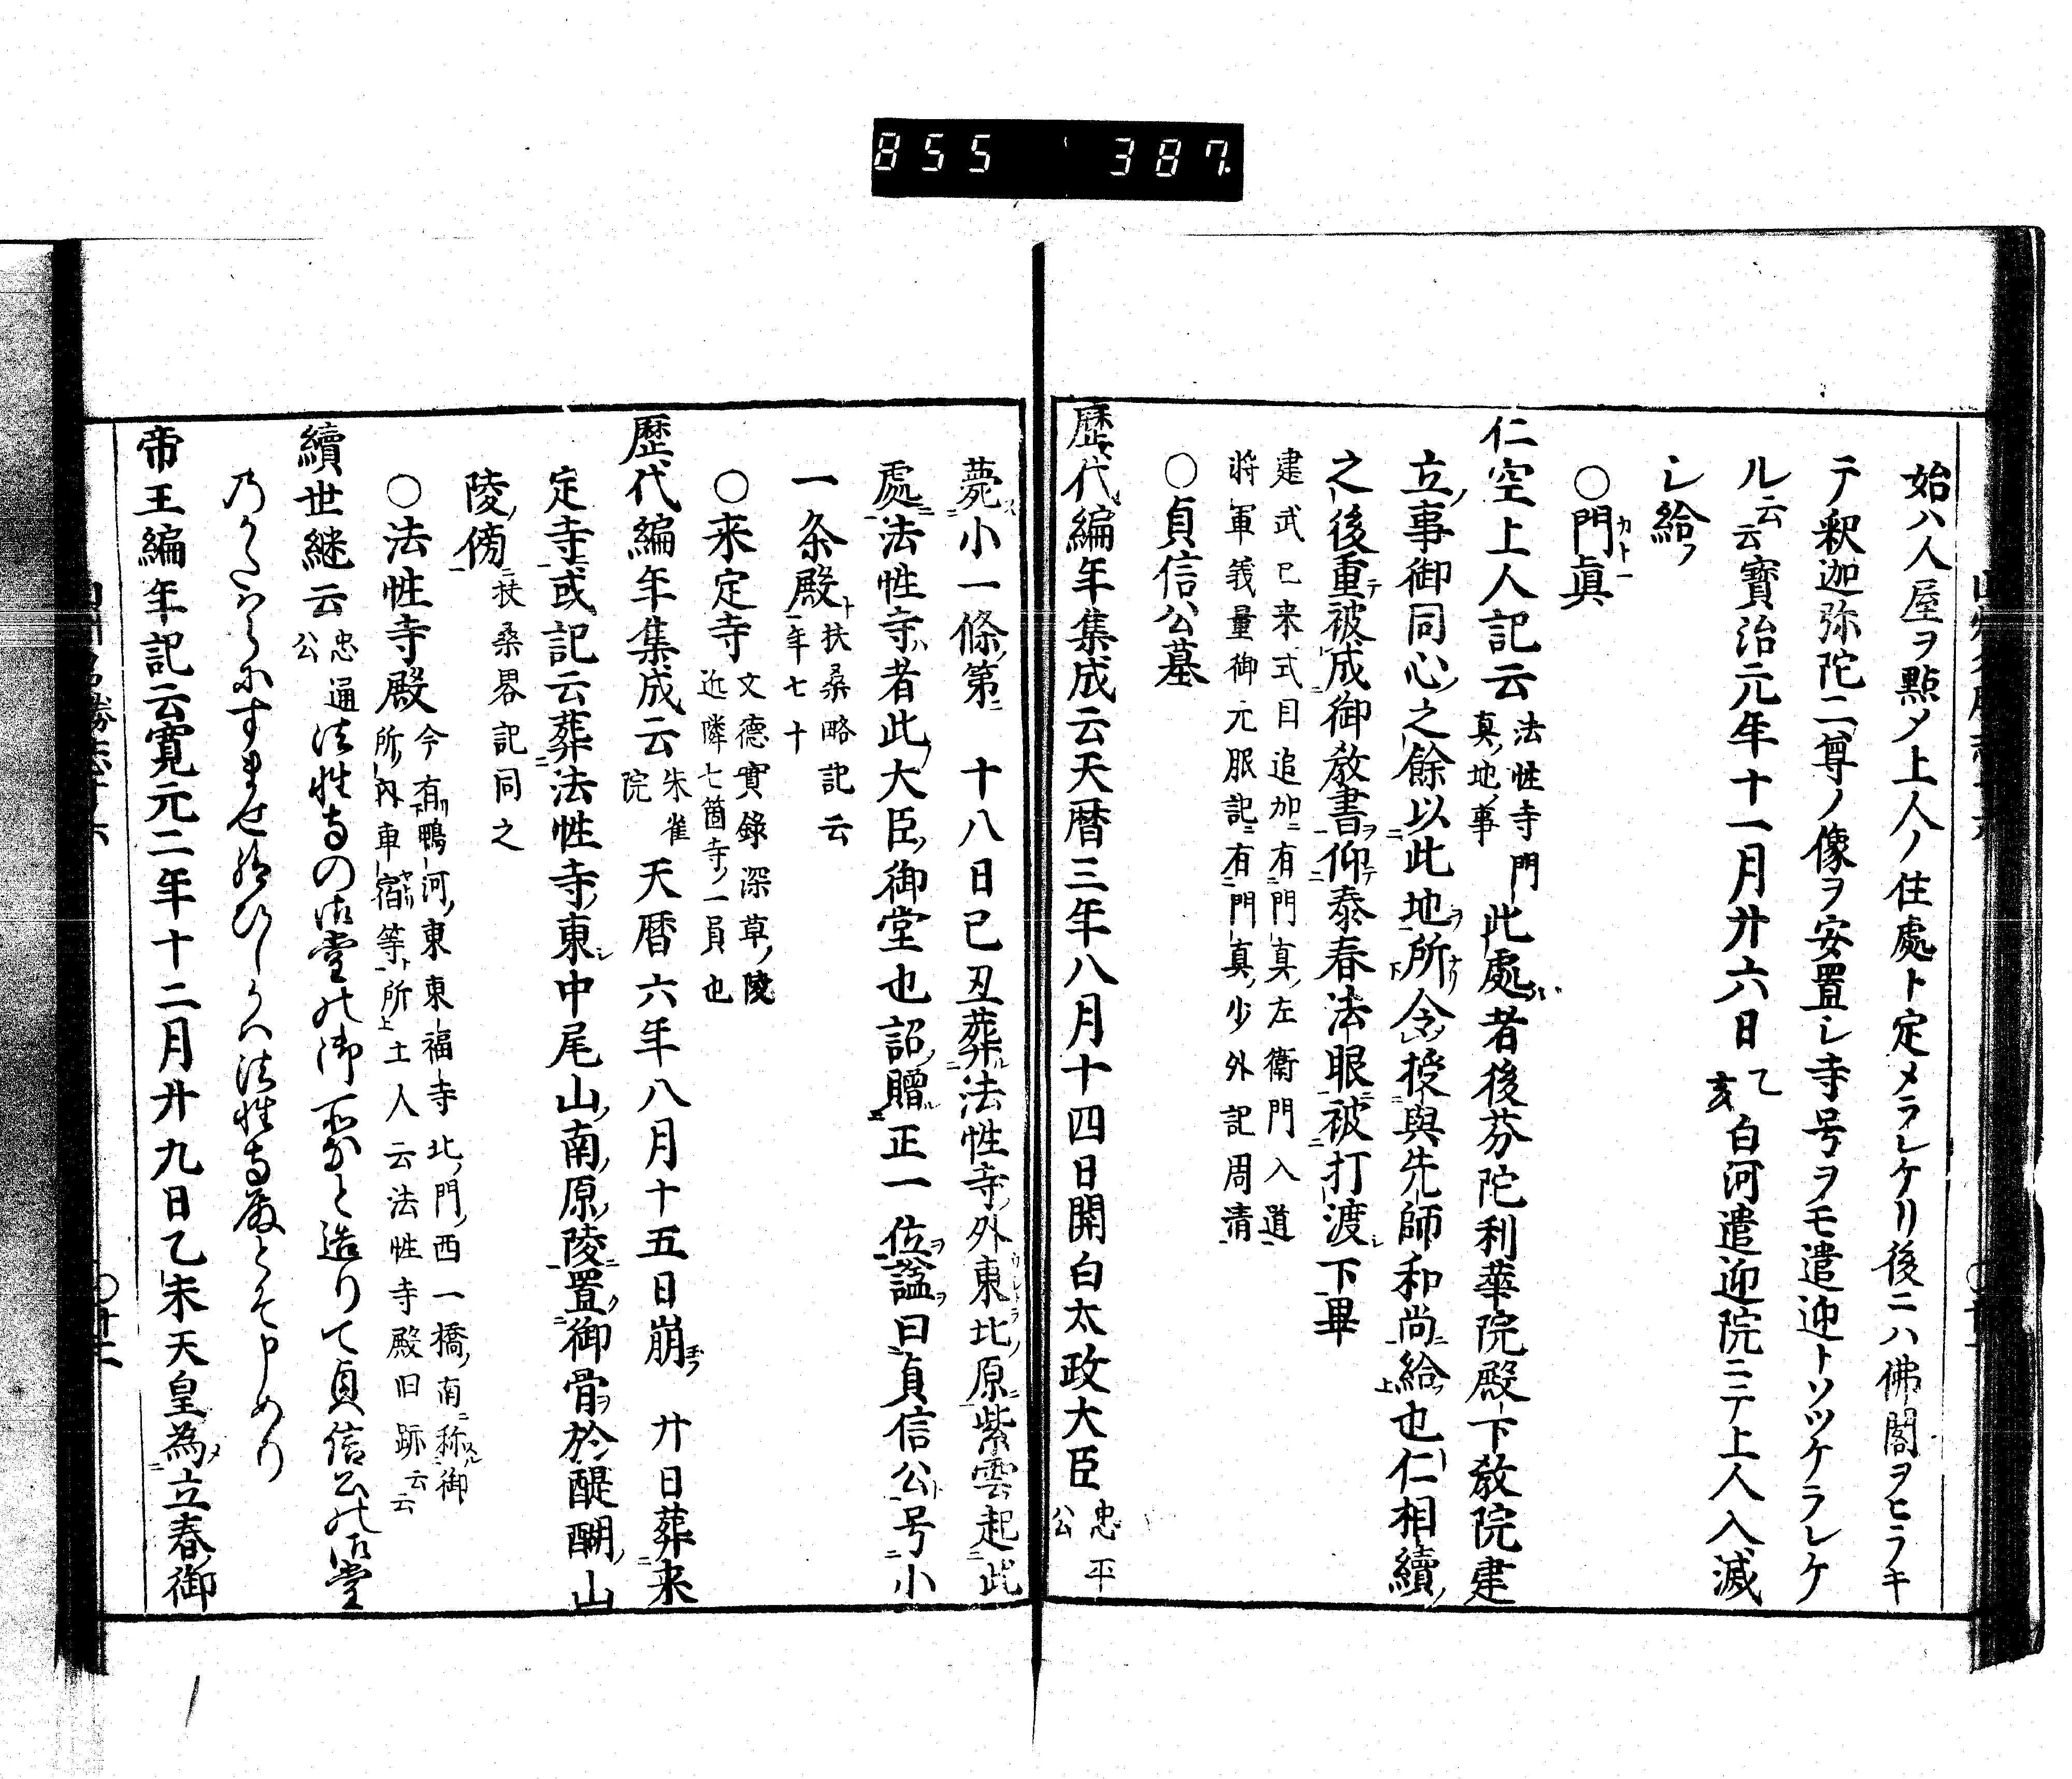 855 387
始ハ人屋ヲ點メ上人ノ住處ト定メラレケリ後ニハ佛閣ヲヒラキ
テ釈迦弥陀二尊ノ像ヲ安置シ寺号ヲモ遣迎トソツケラレケ
ル云云寳治元年十一月廾六日乙亥白河遣迎院ニテ上人入滅
シ給フ
○門眞
仁空上人記云法性寺門真地事此處者後芬陀利華院殿下教院建
立事御同心之餘以此地所令授與先師和尚給也仁相續
之後重被成御教書仰泰春法眼被打渡下畢
建武已来式目追加有門真左衛門入道
将軍義量御元服記有門真少外記周清
○貞信公墓
歷代編年集成云天暦三年八月十四日関白太政大臣忠平公
薨小一條第 十八日己丑葬法性寺外東北原紫雲起此
處法性寺者此大臣御堂也詔贈正一位謚曰貞信公号小
一条殿扶桑略記云年七十
○来定寺文德實錄深草陵近隣七箇寺一員也
歷代編年集成云朱雀院天暦六年八月十五日崩 廾日葬来
定寺或記云葬法性寺東中尾山南原陵置御骨於醍醐山
陵傍扶桑畧記同之
○法性寺殿今有鴨河東東福寺北門西一橋南称御所内車宿等所土人云法性寺殿旧跡云云
續世継云忠通公法性寺の御堂の御所など造りて貞信公の御堂
乃かたはらにすませ給ひしかは法性寺殿とそ申めり
帝王編年記云寛元二年十二月廾九日乙未天皇為立春御